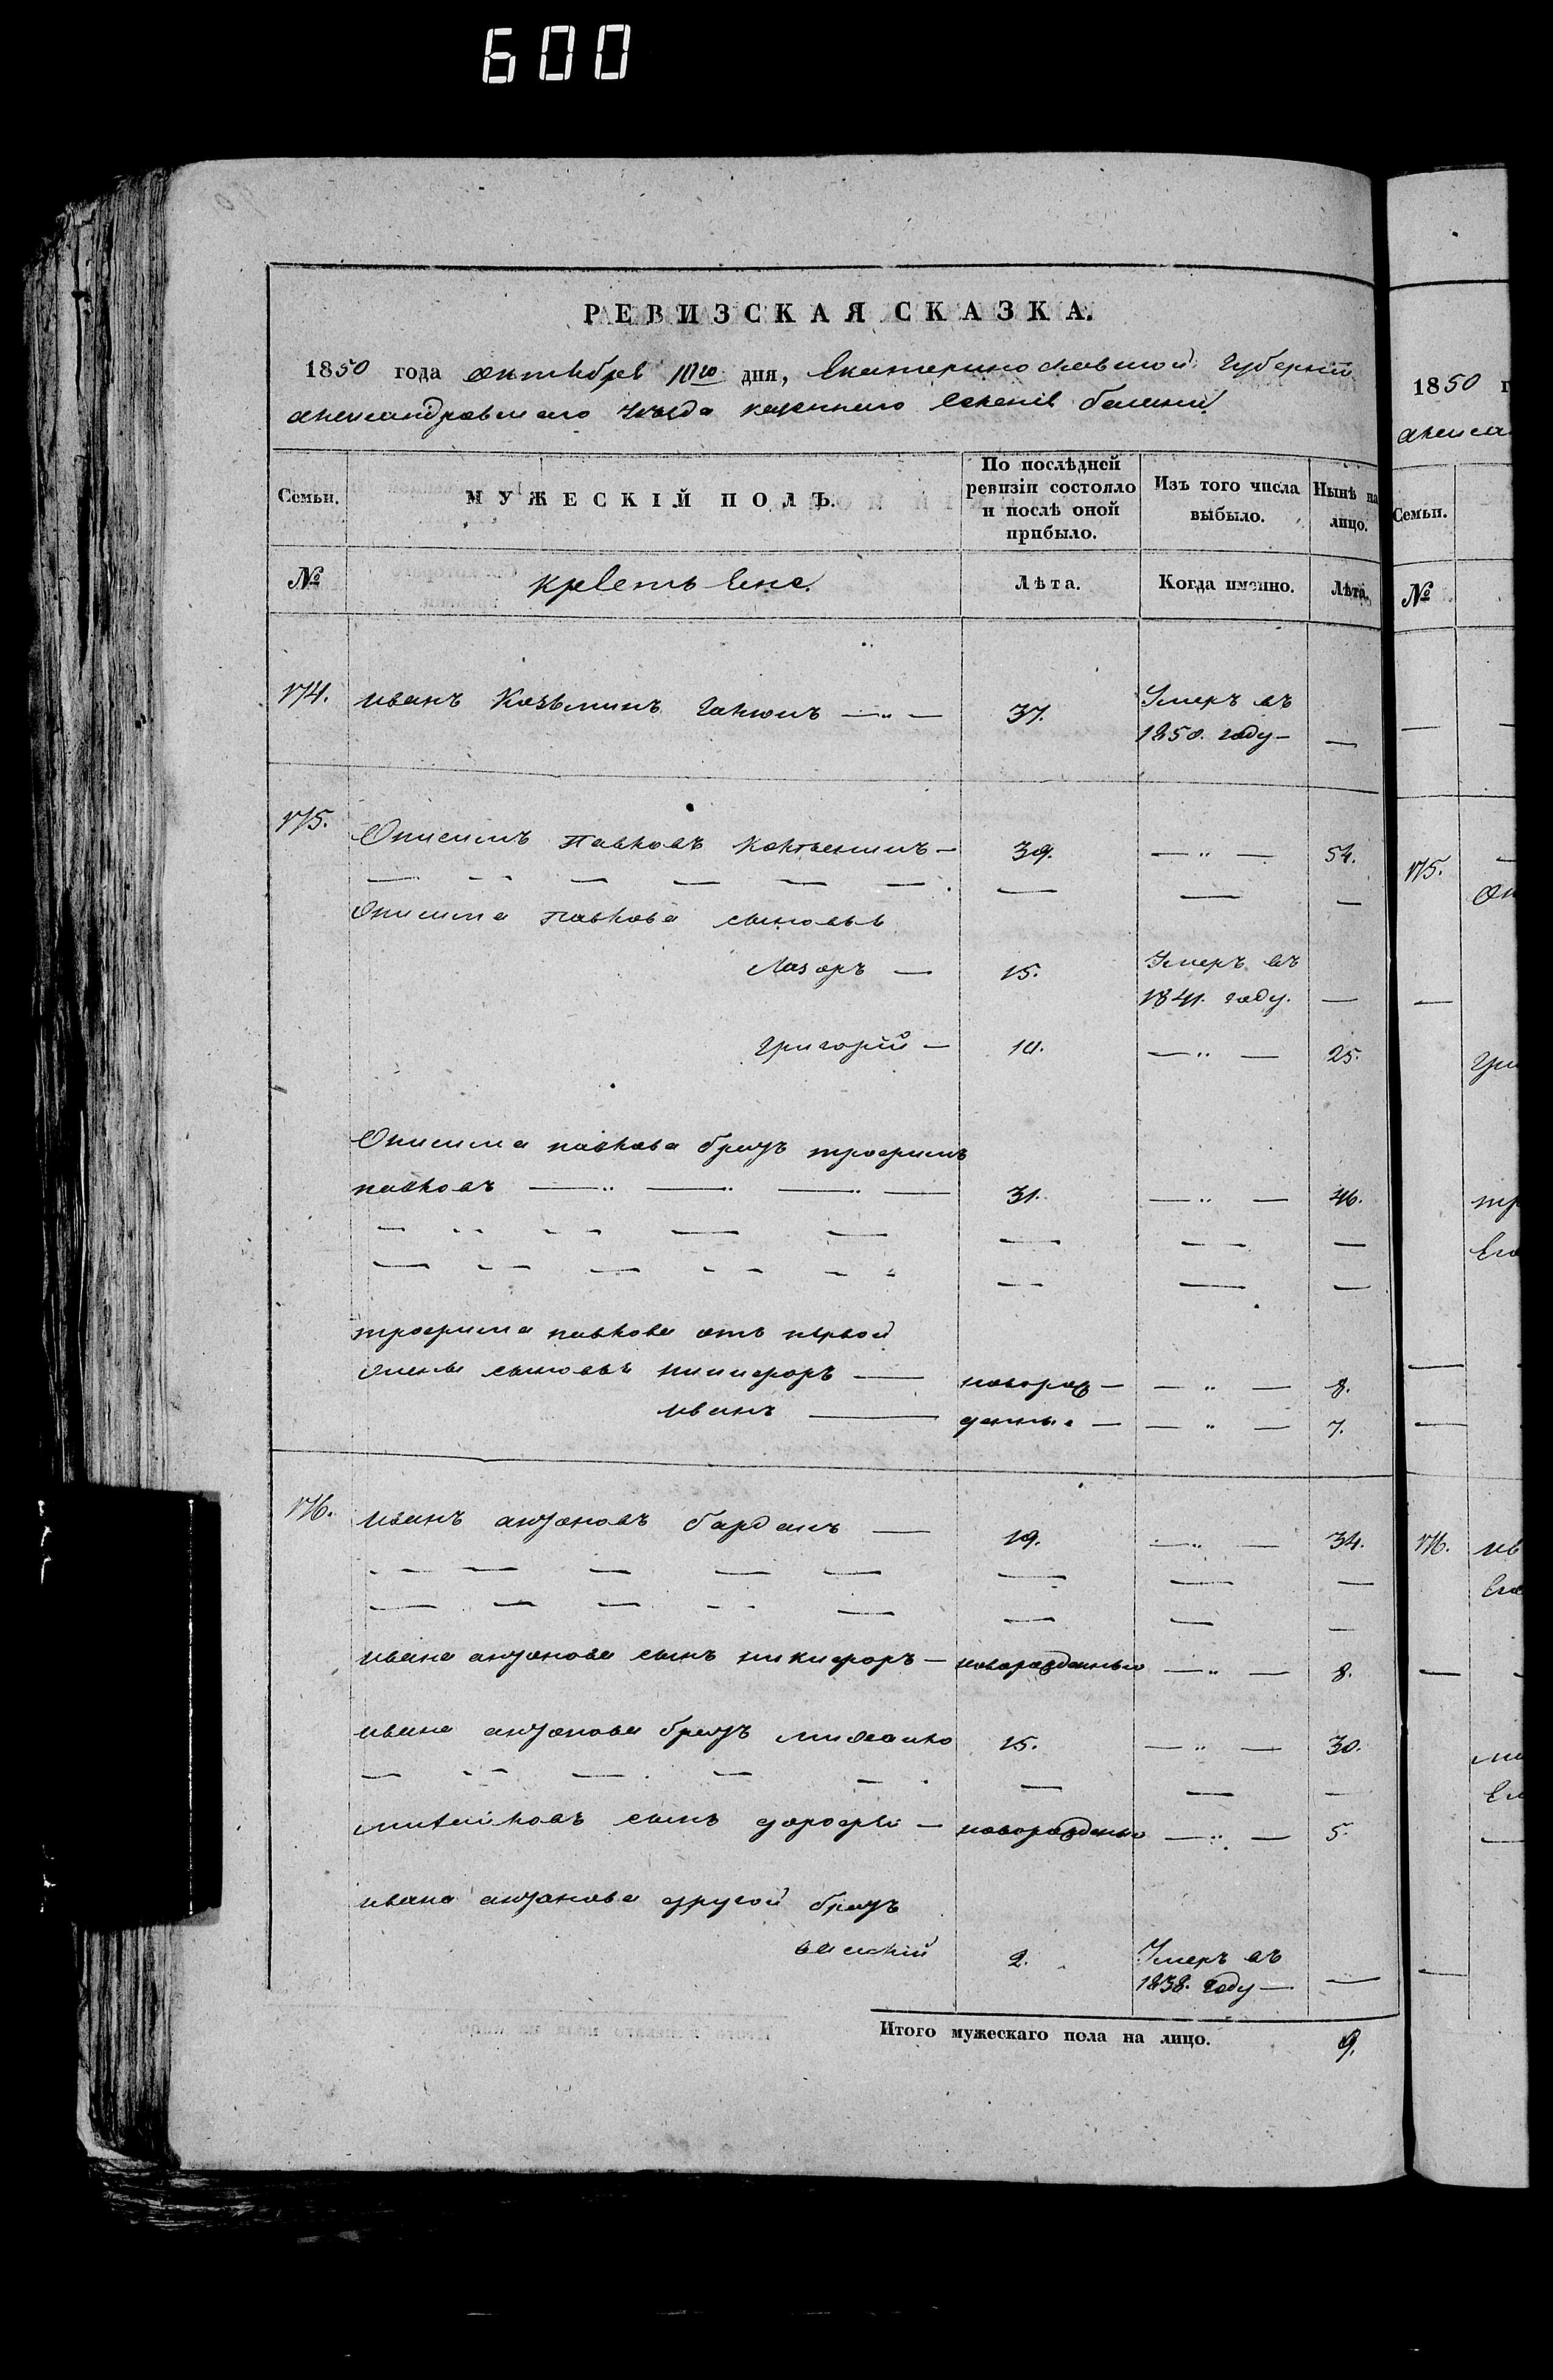 600
РЕВИЗСКАЯ СКАЗКА.
1850 года октября 10го дня, Екатеринославской Губерніи
александровского уѣзда казенного селенія
Семьи.
МУЖЕСКІЙ ПОЛЪ.
По послѣдней ревизіи состояло и послѣ оной прибыло.
Изъ того числа выбыло.
Нынѣ на лицо.
№
Лѣта.
Когда именно.
Лѣта.
174. иванъ Козьминъ 37. Умеръ въ
1850. году —
175. Онисимъ павловъ — 39. — " — 54.
Онисима павлова сыновья
Лазоръ — 15. Умеръ въ
1841. году. —
григорій — 10. — " — 25.
Онисима павлова братъ трофимъ
павловъ — 31. — " — 46.
трофима павлова отъ первой
жены сыновья никифоръ — новорож — — " — 8.
иванъ — денные — — " — 7.
176. иванъ антоновъ — 19. — " — 34.
ивана антонова сынъ никифоръ — новорожденный — " — 8.
ивана антонова братъ 15. — " — 30.
сынъ дорофей — новорожденный — " — 5.
ивана антонова другой братъ
василій 2. Умеръ въ
1838. году — —
Итого мужескаго пола на лицо. 9.
1850 г
Семьи.
№
175. Он
Гри
тр
Его
176. ив
Его